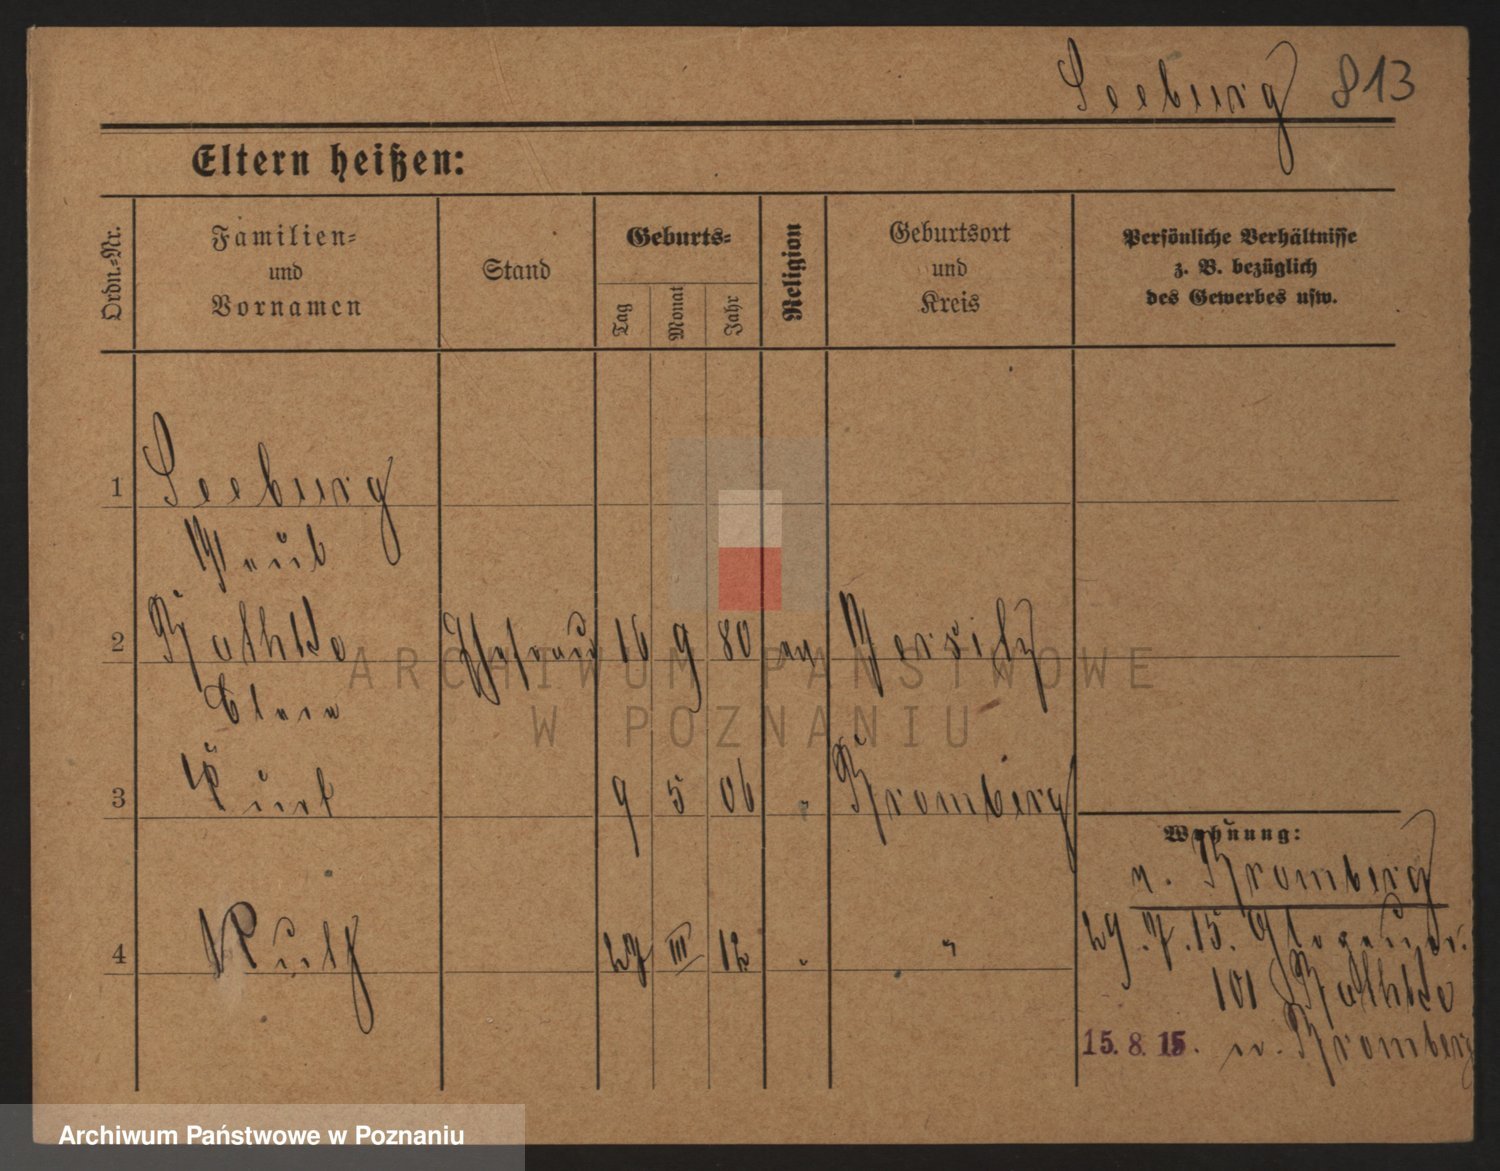 Seeburg 813
Eltern heißen:
Ordn.-Nr.
Familien-
und
Vornamen
Stand
Geburts-
Tag
Monat
Jahr
Religion
Geburtsort
und
Kreis
Persönliche Verhältnisse
z. B. bezüglich
des Gewerbes usw.
1 Seeburg
2 Rathke Ehefrau 16 9 80 ev Jersitz
Clara
3 Kurt 9 5 06 " Bromberg
4 Ruth 27 III 12 " "
Wohnung:
n. Bromberg
29.7.15. Glogauer.
101 b Rathke
15.8.15. n. Bromberg
ARCHIWUM PAŃSTWOWE
W POZNANIU
Archiwum Państwowe w Poznaniu